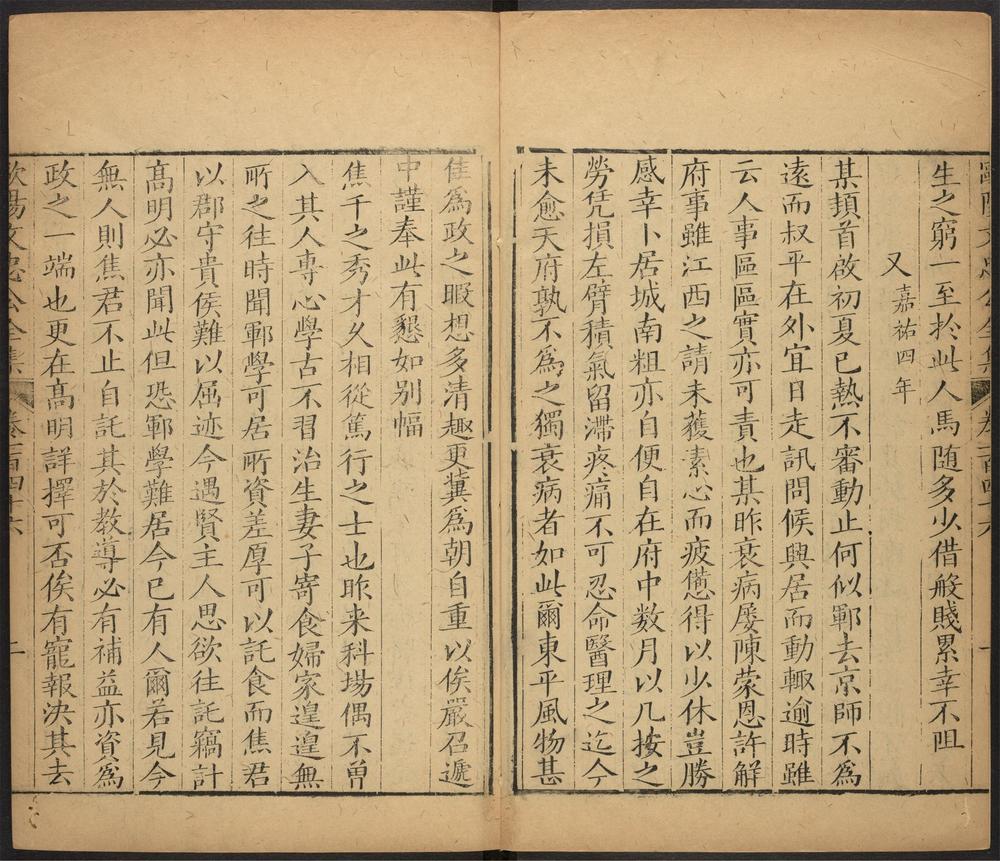 歐陽文忠公全集 卷一百四十六 一
生之窮一至扵此人馬随多少借般賤累幸不阻
又 嘉祐四年
某頓首啟初夏已熱不審動止何似鄆去京師不爲
逺而叔平在外宜日走訊問候興居而動輒逾時雖
云人事區區實亦可責也某昨衰病屡陳蒙恩許解
府事雖江西之請未獲素心而疲憊得以少休豈勝
感幸卜居城南粗亦自便自在府中数月以几按之
勞凭損左臂積氣留滯疼痛不可忍命醫理之迄今
未愈天府孰不爲之獨衰病者如此爾東平風物甚
佳爲政之暇想多清趣更冀爲朝自重以俟嚴召遞
中謹奉此有懇如别幅
焦千之秀才乆相從篤行之士也昨来科塲偶不曽
入其人専心學古不習治生妻子寄食婦家遑遑無
所之往時聞鄆學可居所資差厚可以託食而焦君
以郡守貴侯難以屈迹今遇賢主人思欲往託竊計
髙明必亦聞此但恐鄆學難居今已有人爾若見今
無人則焦君不止自託其於教導必有補益亦資爲
政之一端也更在髙明詳擇可否俟有寵報决其去
歐陽文忠公全集 卷一百四十六 二